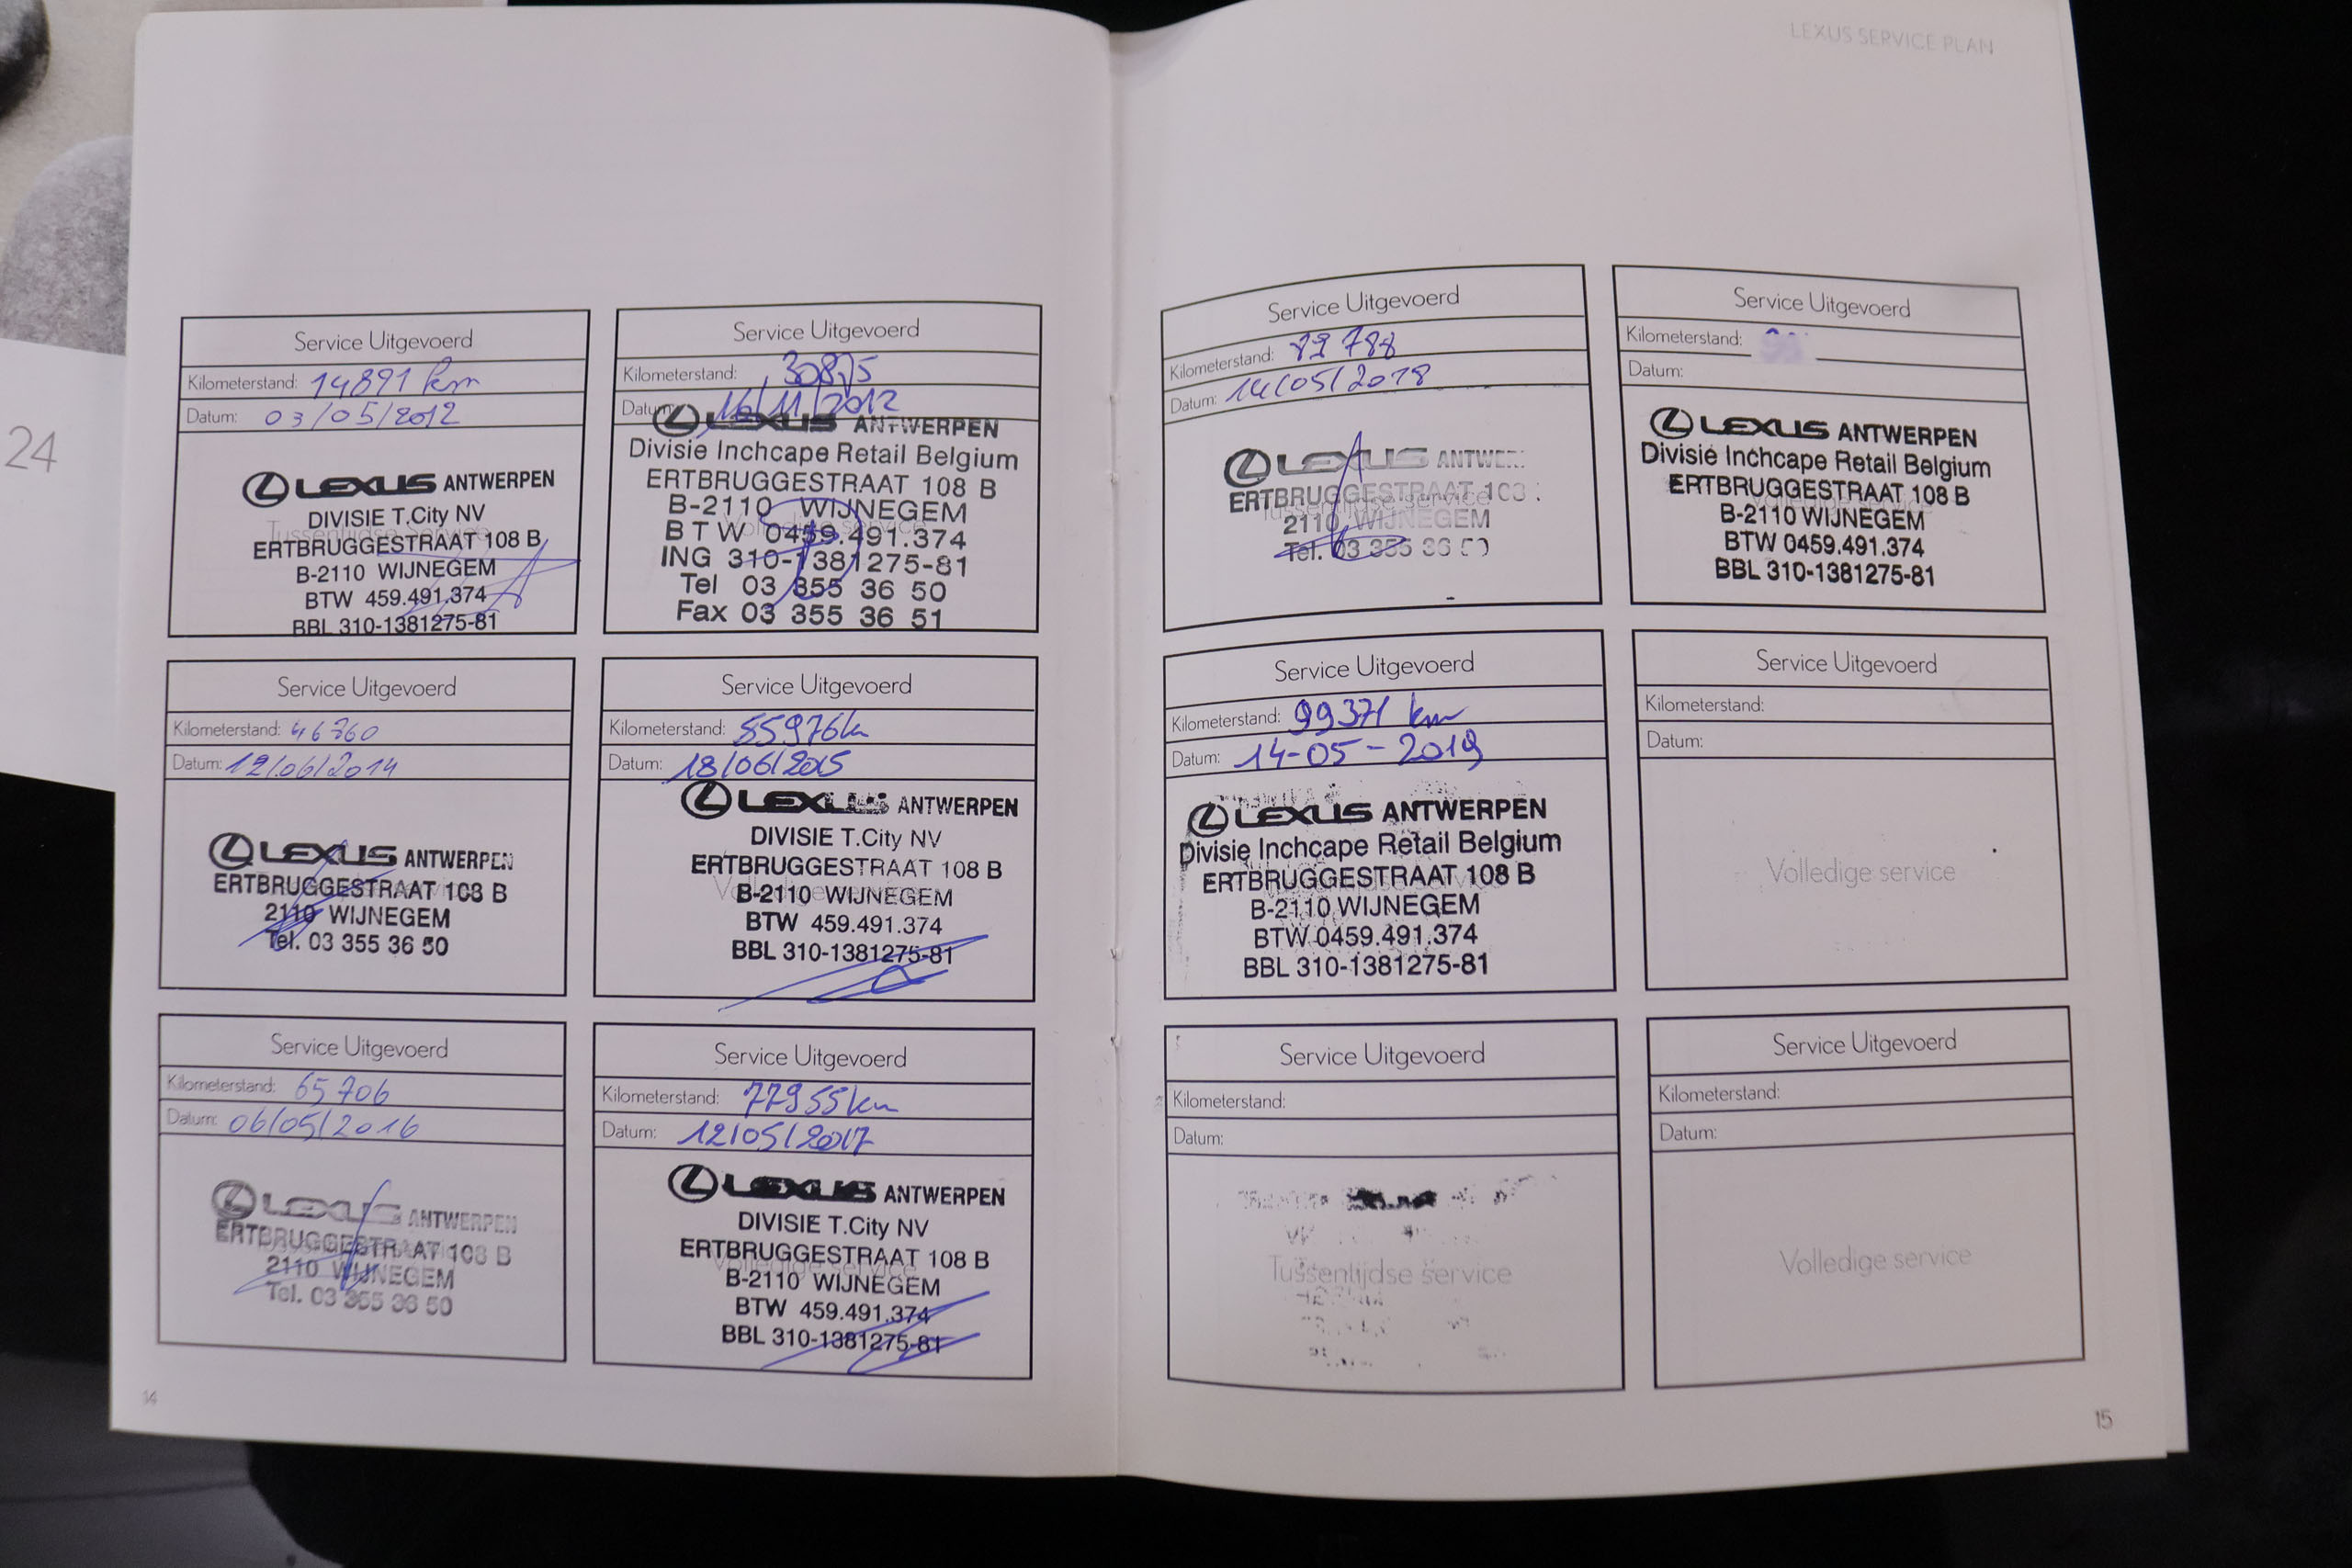 24
LEXUS SERVICE PLAN
Service Uitgevoerd
Kilometerstand: 14891 km
Datum: 03/05/2012
LEXUS ANTWERPEN
DIVISIE T.City NV
Tussentijdse Service
ERTBRUGGESTRAAT 108 B
B-2110 WIJNEGEM
BTW 459.491.374
BBL 310-1381275-81
Service Uitgevoerd
Kilometerstand: 30875
Datum: 16/11/2012
LEXUS ANTWERPEN
Divisie Inchcape Retail Belgium
ERTBRUGGESTRAAT 108 B
B-2110 WIJNEGEM
Volledige service
BTW 0459.491.374
ING 310-1381275-81
Tel 03 355 36 50
Fax 03 355 36 51
Service Uitgevoerd
Kilometerstand: 46360
Datum: 12/06/2014
LEXUS ANTWERPEN
ERTBRUGGESTRAAT 108 B
2110 WIJNEGEM
Tel. 03 355 36 50
Service Uitgevoerd
Kilometerstand: 55976km
Datum: 18/06/2015
LEXUS ANTWERPEN
DIVISIE T.City NV
ERTBRUGGESTRAAT 108 B
Volledige service
B-2110 WIJNEGEM
BTW 459.491.374
BBL 310-1381275-81
Service Uitgevoerd
Kilometerstand: 65706
Datum: 06/05/2016
LEXUS ANTWERPEN
ERTBRUGGESTRAAT 108 B
2110 WIJNEGEM
Tel. 03 355 36 50
Service Uitgevoerd
Kilometerstand: 77955km
Datum: 12/05/2017
LEXUS ANTWERPEN
DIVISIE T.City NV
ERTBRUGGESTRAAT 108 B
Volledige service
B-2110 WIJNEGEM
BTW 459.491.374
BBL 310-1381275-81
14
Service Uitgevoerd
Kilometerstand: 788
Datum: 14/05/2018
LEXUS ANTWER
ERTBRUGGESTRAAT 108
Tussentijdse service
2110 WIJNEGEM
Tel. 03 355 36 50
Service Uitgevoerd
Kilometerstand:
Datum:
LEXUS ANTWERPEN
Divisie Inchcape Retail Belgium
ERTBRUGGESTRAAT 108 B
Volledige service
B-2110 WIJNEGEM
BTW 0459.491.374
BBL 310-1381275-81
Service Uitgevoerd
Kilometerstand: 99371 km
Datum: 14-05-2019
LEXUS ANTWERPEN
Divisie Inchcape Retail Belgium
ERTBRUGGESTRAAT 108 B
B-2110 WIJNEGEM
BTW 0459.491.374
BBL 310-1381275-81
Service Uitgevoerd
Kilometerstand:
Datum:
Volledige service
Service Uitgevoerd
Kilometerstand:
Datum:
Tussentijdse service
Service Uitgevoerd
Kilometerstand:
Datum:
Volledige service
15